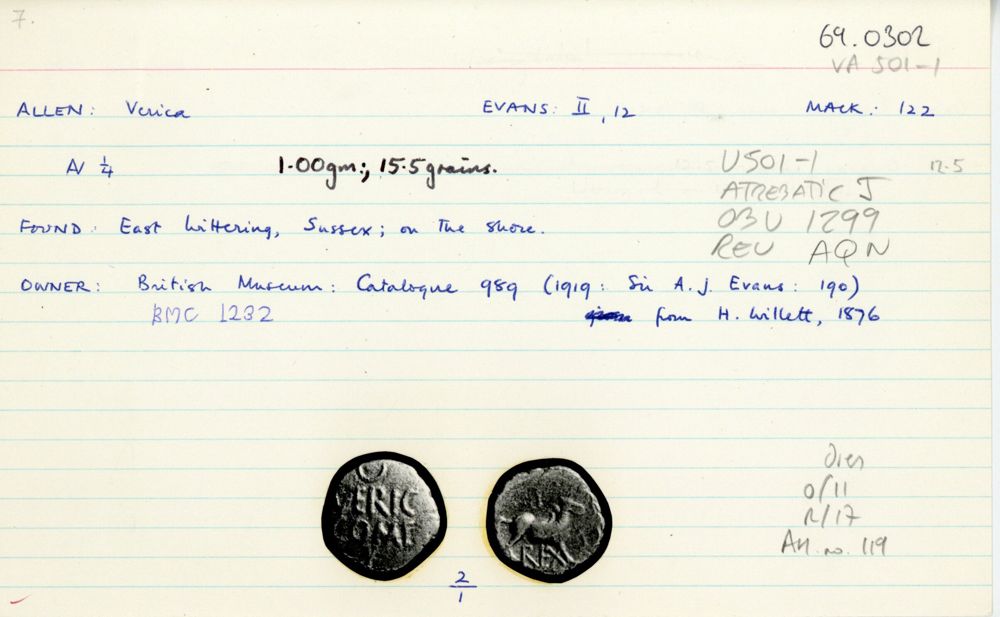 7.
69.0302
VA 501-1
ALLEN: Verica EVANS: II, 12 MACK: 122
AV 1/4 1.00gm.; 15.5 grains.
U501-1
12.5
ATREBATIC J
OBV 1299
REV AQN
FOUND: East Wittering, Sussex; on the shore.
OWNER: British Museum: Catalogue 989 (1919: Sir A.J. Evans: 190)
BMC 1232
from H. Willett, 1876
dies
O/11
R/17
All. no. 119
VERIC
COMF
REX
2/1